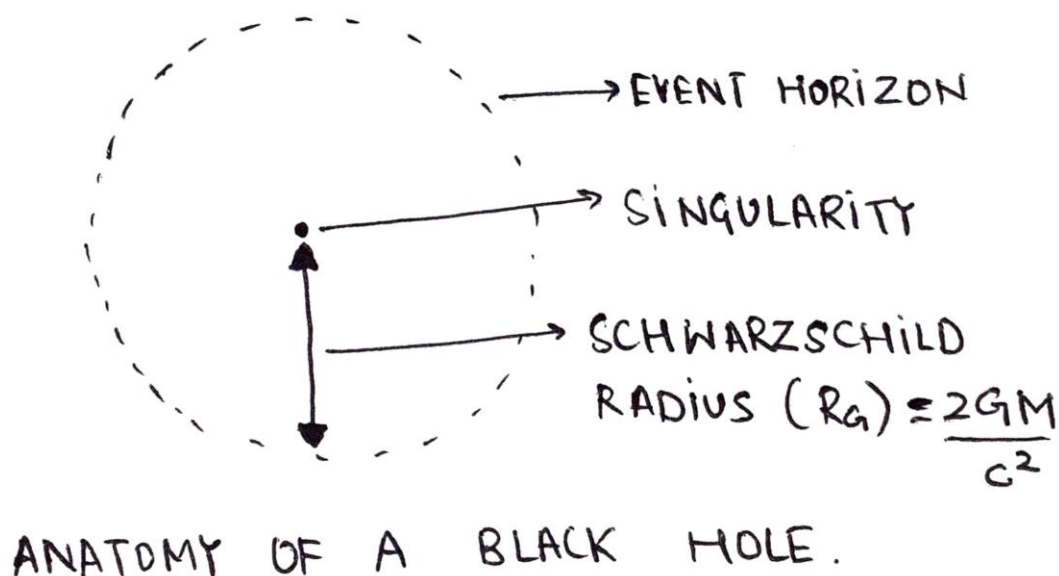 EVENT HORIZON
SINGULARITY
SCHWARZSCHILD
RADIUS (RG) = 2GM/c²
ANATOMY OF A BLACK HOLE.